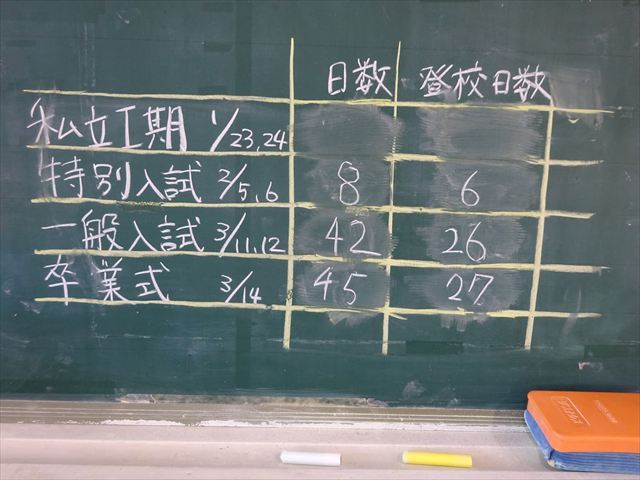 日数 登校日数
私立Ⅰ期 1/23,24
特別入試 2/5,6 8 6
一般入試 3/11,12 42 26
卒業式 3/14 45 27